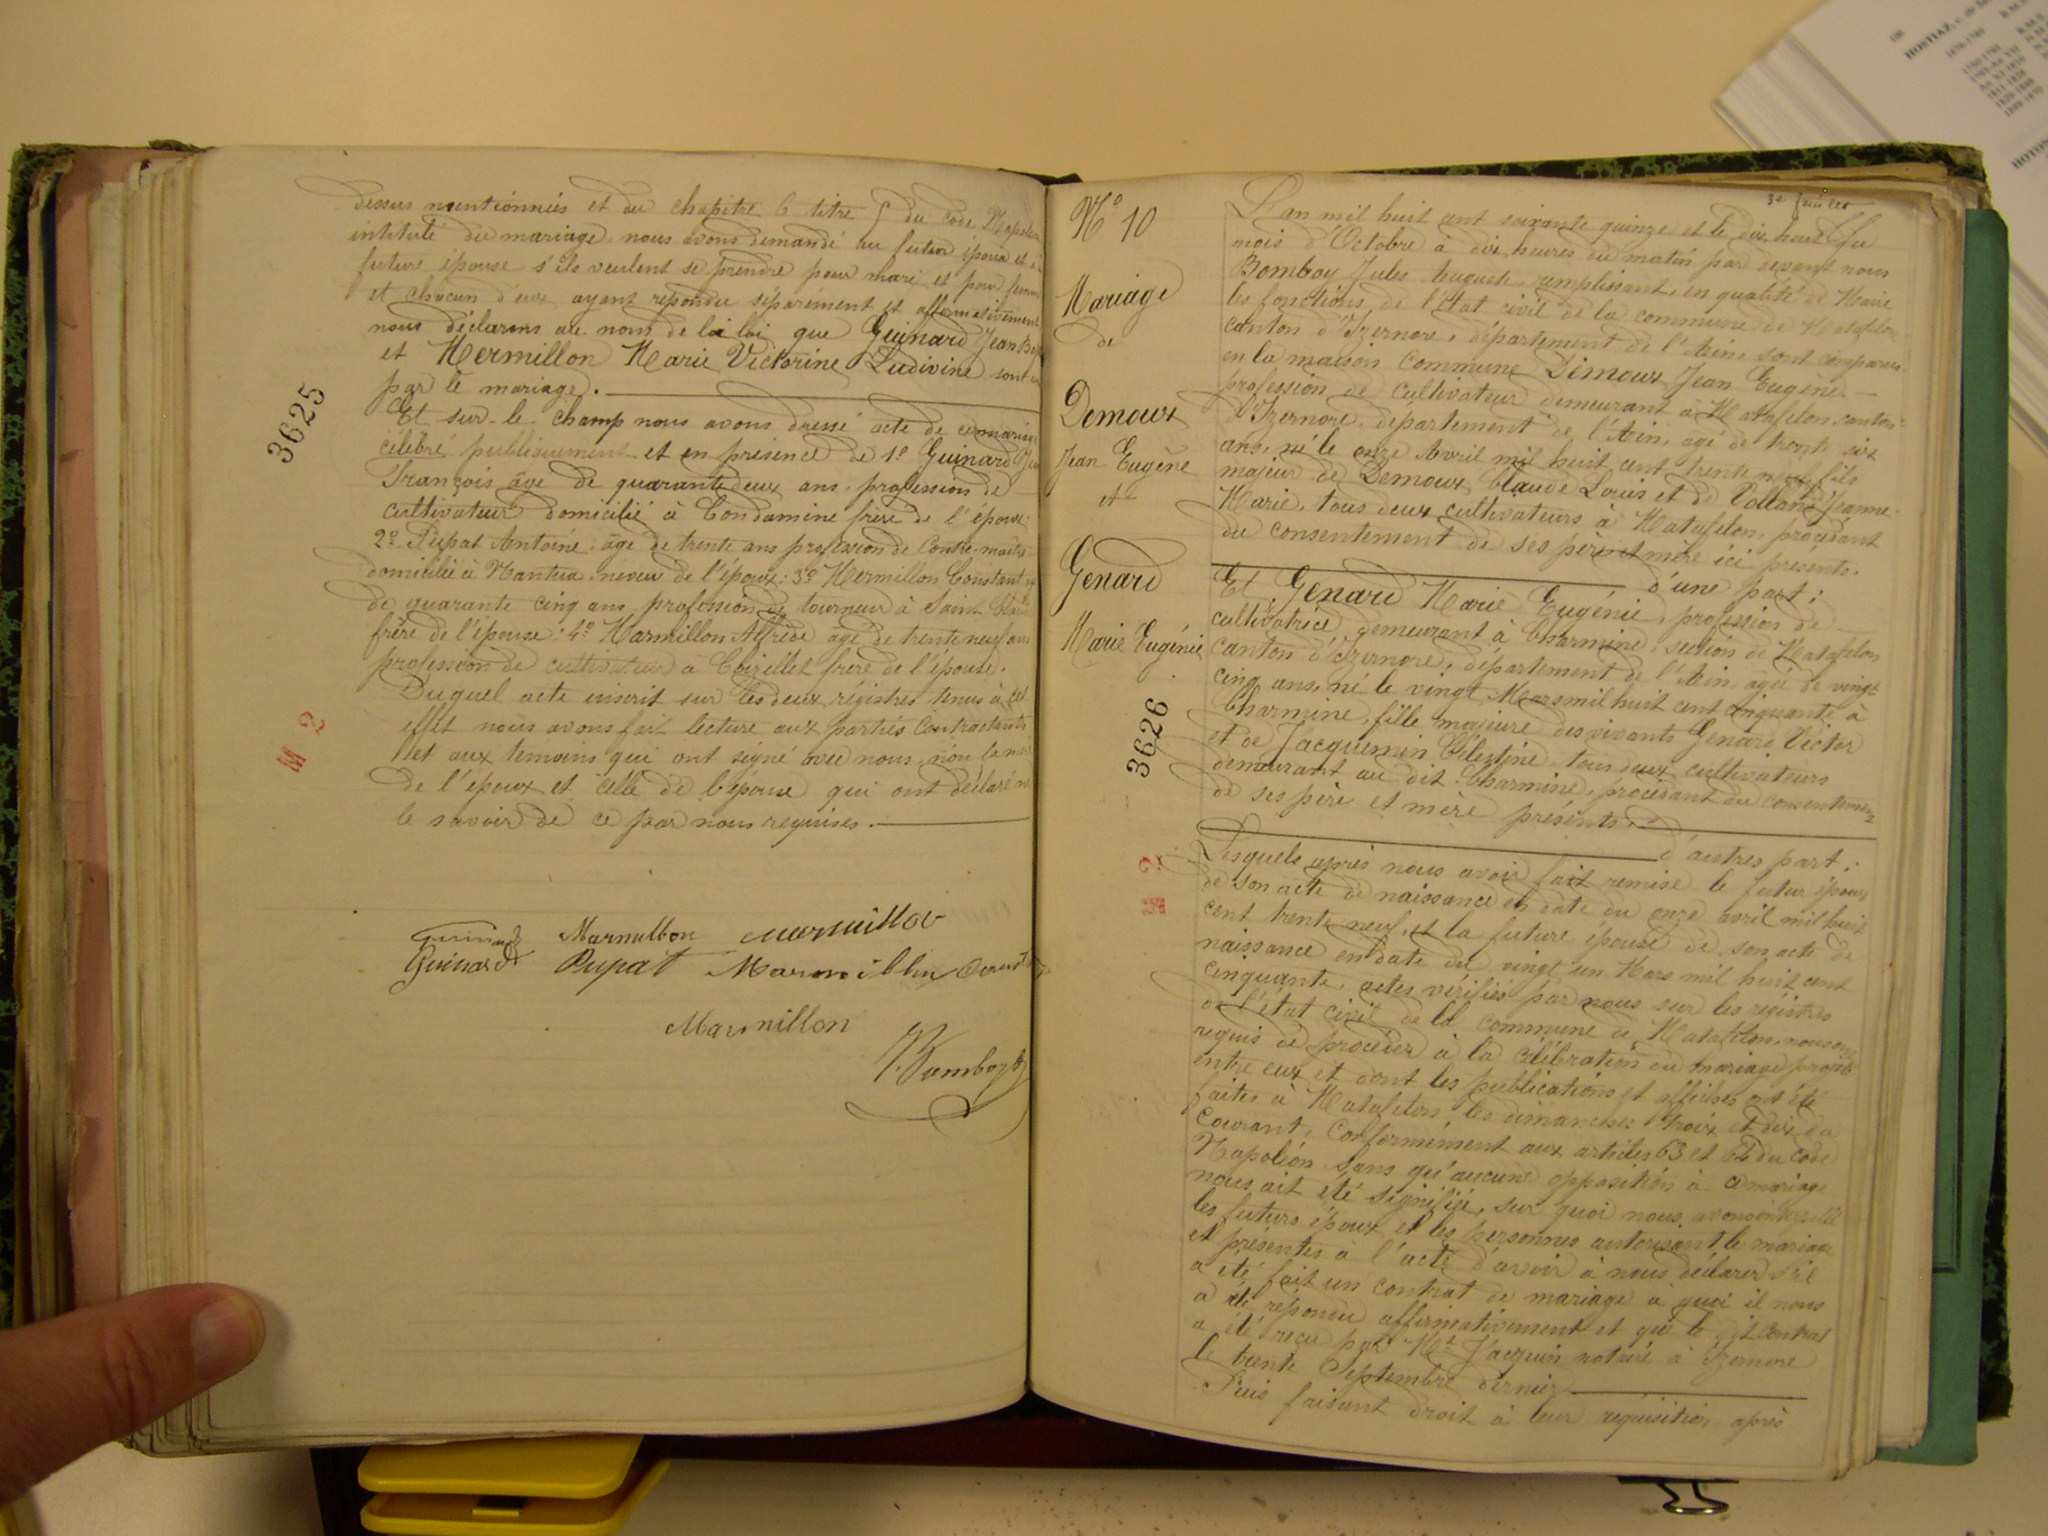 dessus mentionnées et du chapitre 6 titre 5 du Code Napoléon
intitulé du mariage, nous avons demandé au futur époux et à
future épouse s'ils veulent se prendre pour mari et pour femme
et chacun d'eux ayant répondu séparément et affirmativement
nous déclarons au nom de la loi que Guinard Jean
et Mermillon Marie Victorine Ludivine sont
par le mariage.
Et sur-le champ nous avons dressé acte de ce mariage
célébré publiquement et en présence de 1º Guinard
François âgé de quarante deux ans, profession de
cultivateur domicilié à Condamine frère de l'époux
2º Pupat Antoine âgé de trente ans profession de Contre-maître
domicilié à Nantua neveu de l'époux: 3º Mermillon Constant
de quarante cinq ans, profession de tourneur à Saint Claude
frère de l'épouse: 4º Marmillon Alfred âgé de trente neuf ans
profession de cultivateur à frère de l'épouse.
Duquel acte inscrit sur les deux régistres tenus à cet
effet nous avons fait lecture aux parties contractantes
et aux temoins qui ont signé avec nous, non la mère
de l'époux et celle de l'épouse qui ont déclaré ne
le savoir de ce par nous requises.
3625
M 2
Guinard Marmillon Marmillon
Guinard Pupat Marmillon
Marmillon
J. Bomboy
Nº 10
Mariage
de
Demoux
Jean Eugène
et
Genard
Marie Eugénie
3626
M 2
L'an mil huit cent soixante quinze et le dix huit du
mois d'Octobre à dix heures du matin par devant nous
Bomboy Jules Auguste remplissant en qualité de Maire
les fonctions de l'état civil de la commune de Matafelon
canton d'Izernore, département de l'Ain, sont comparus
en la maison commune Demoux Jean Eugène
profession de cultivateur demeurant à Matafelon, canton
d'Izernore, département de l'Ain, agé de trente six
ans, né le onze Avril mil huit cent trente neuf fils
majeur de Demoux Claude Louis et de Volland Jeanne
Marie, tous deux cultivateurs à Matafelon, procédant
du consentement de ses père et mère ici présents.
d'une part;
Et Genard Marie Eugénie, profession de
cultivatrice demeurant à Charmine, section de Matafelon
canton d'Izernore, département de l'Ain agée de vingt
cinq ans, né le vingt Mars mil huit cent cinquante à
Charmine, fille majeure des vivants Genard Victor
et de Jacquemin Célestine tous deux cultivateurs
demeurant au dit Charmine, procédant du consentement
de ses père et mère présents.
d'autres part;
Lesquels après nous avoir fait remise le futur époux
de son acte de naissance en date du onze avril mil huit
cent trente neuf, et la future épouse de son acte de
naissance en date du vingt un Mars mil huit cent
cinquante, actes vérifiés par nous sur les régistres
de l'état civil de la commune de Matafelon, nous ont
requis de procéder à la célébration du mariage projeté
entre eux et dont les publications et affiches ont été
faites à Matafelon les dimanches trois et dix du
courant, conformément aux articles 63 et 64 du Code
Napoléon sans qu'aucune opposition à ce mariage
nous ait été signifiée, sur quoi nous avons interpellé
les futurs époux et les personnes autorisant le mariage
et présentes à l'acte d'avoir à nous déclarer s'il
a été fait un contrat de mariage à quoi il nous
a été répondu affirmativement et que le dit contrat
a été reçu par Me Jacquin notaire à Izernore
le trente Septembre dernier
Puis faisant droit à leur requisition après